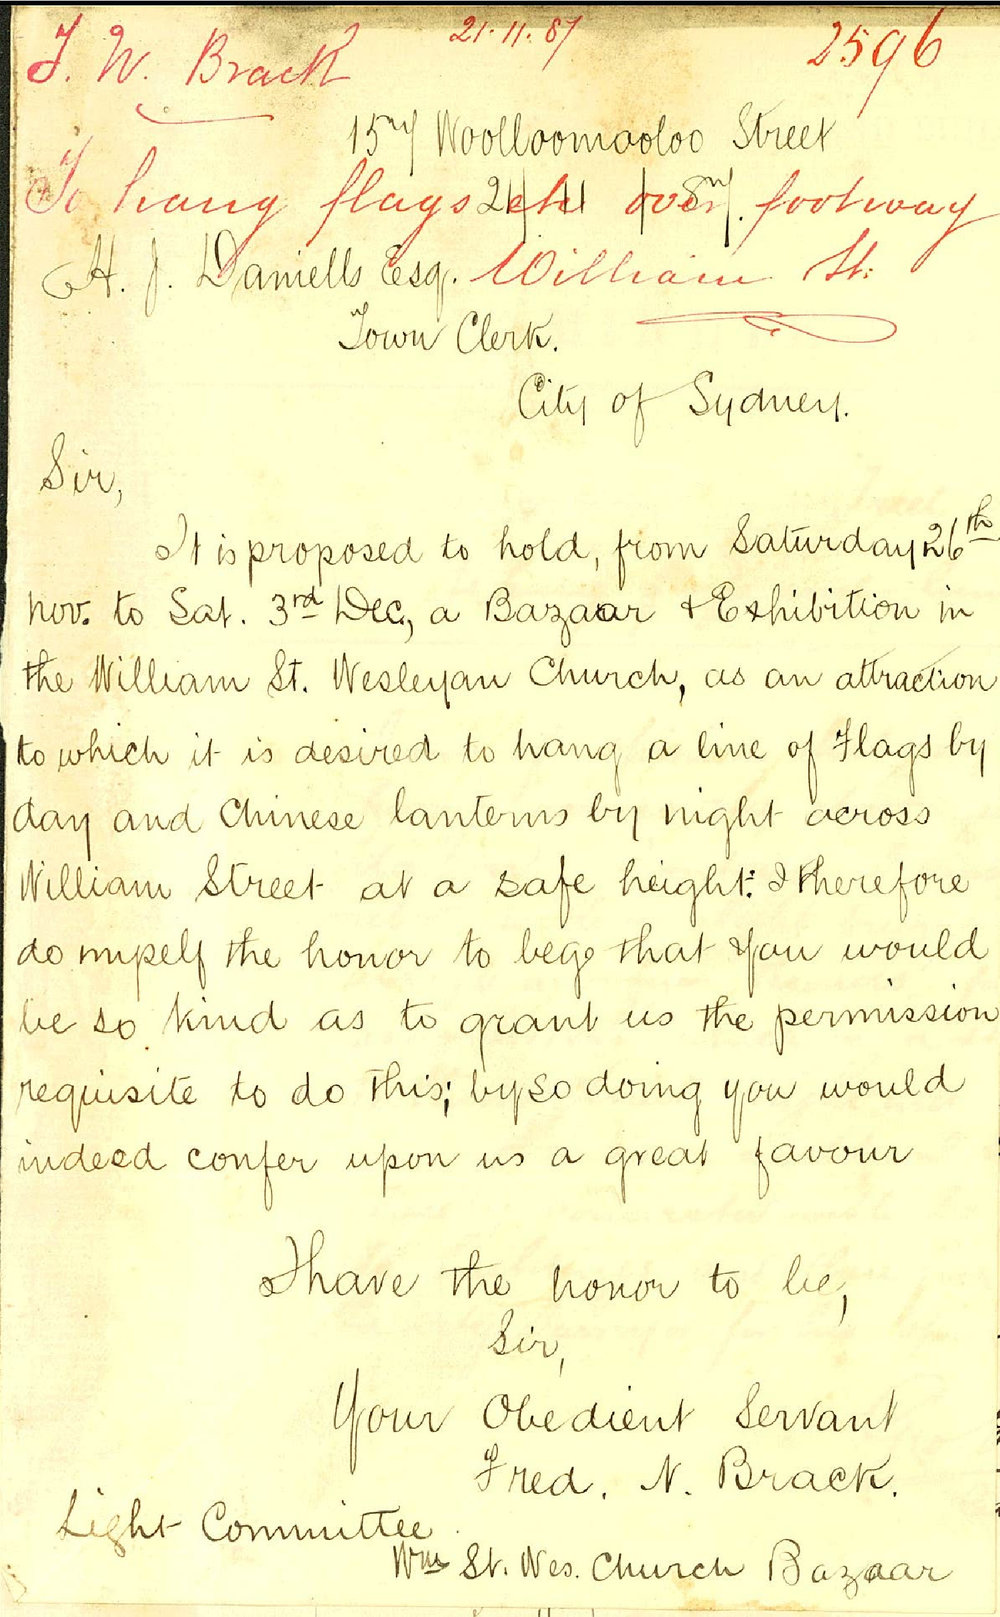 F. W. Brack
21.11.87
2596
157 Woolloomooloo Street
To hang flags etc over footway
William St.
H. J. Daniells Esq.
Town Clerk.
City of Sydney.
Sir,
It is proposed to hold, from Saturday 26th
Nov. to Sat. 3rd Dec, a Bazaar & Exhibition in
the William St. Wesleyan Church, as an attraction
to which it is desired to hang a line of Flags by
day and Chinese lanterns by night across
William Street at a safe height: I therefore
do myself the honor to beg that you would
be so kind as to grant us the permission
requisite to do this; by so doing you would
indeed confer upon us a great favour
I have the honor to be,
Sir,
Your Obedient Servant
Fred. N. Brack.
Light Committee
Wm St. Wes. Church Bazaar